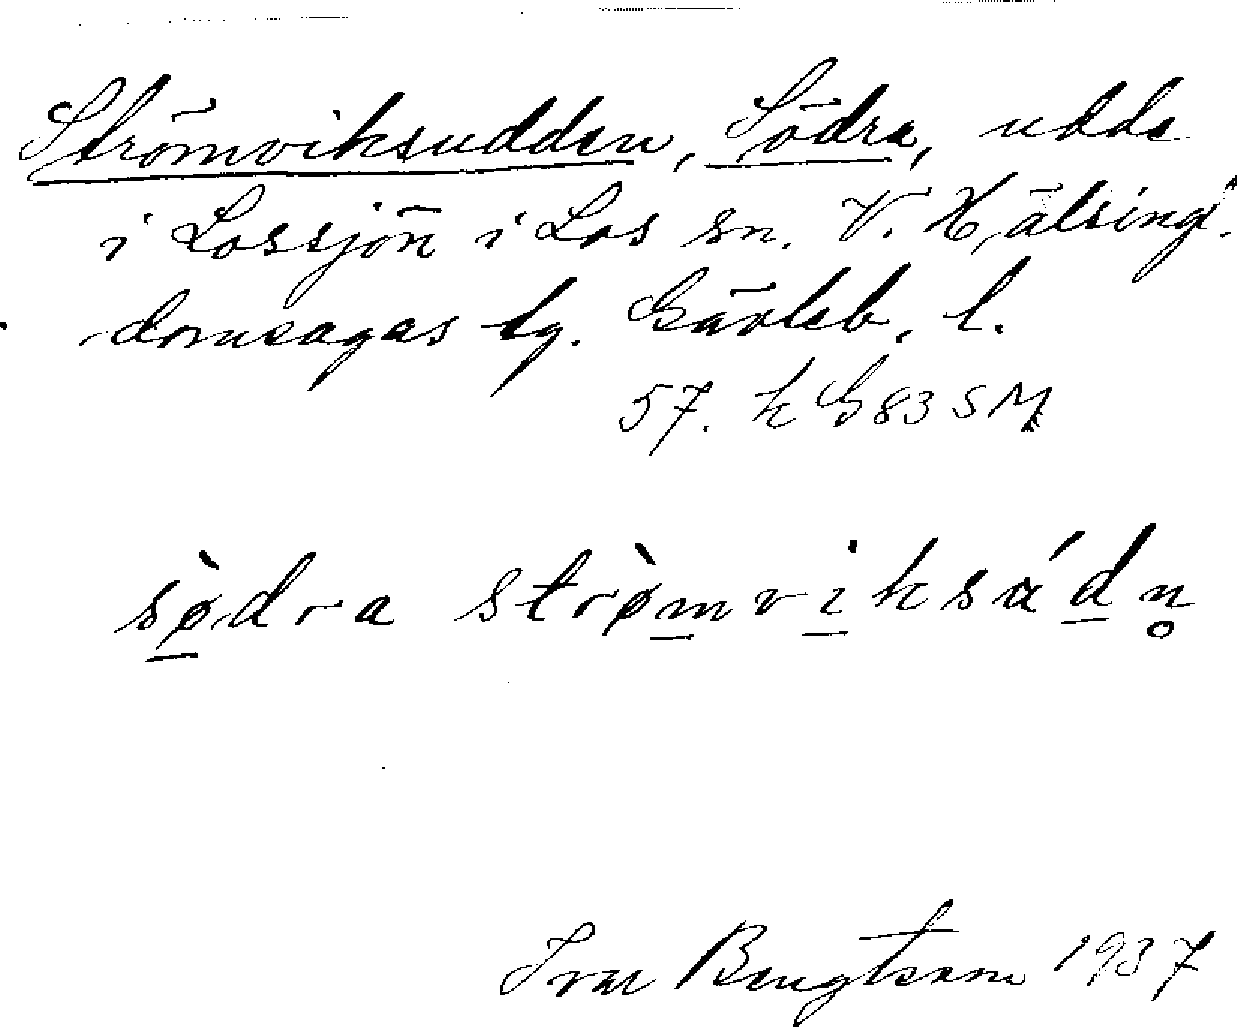 Strömviksudden, Södra, udde
i Lossjön i Los sn. V. Hälsingl.
domsagas tg. Gävleb. l.
57. k G83 SM
sø̀dra strø̀mviksádn̥
Ivar Bengtsson 1937